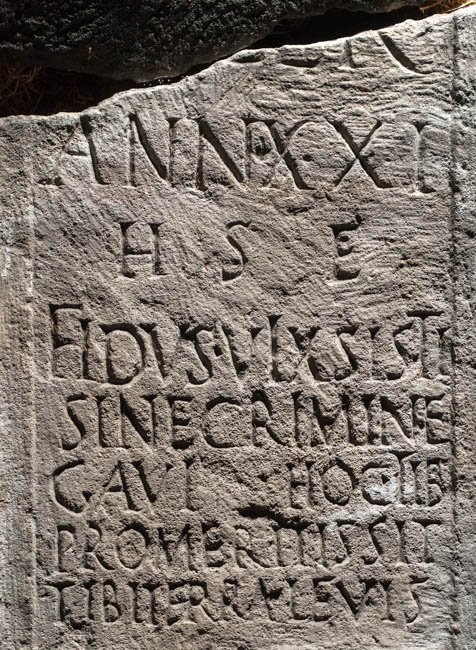 ANN XXI
H S E
FIDVS VIXSISTI
SINE CRIMINE
GAVI HOC TIB
PRO MERITIS SIT
TIBI TERRA LEVIS